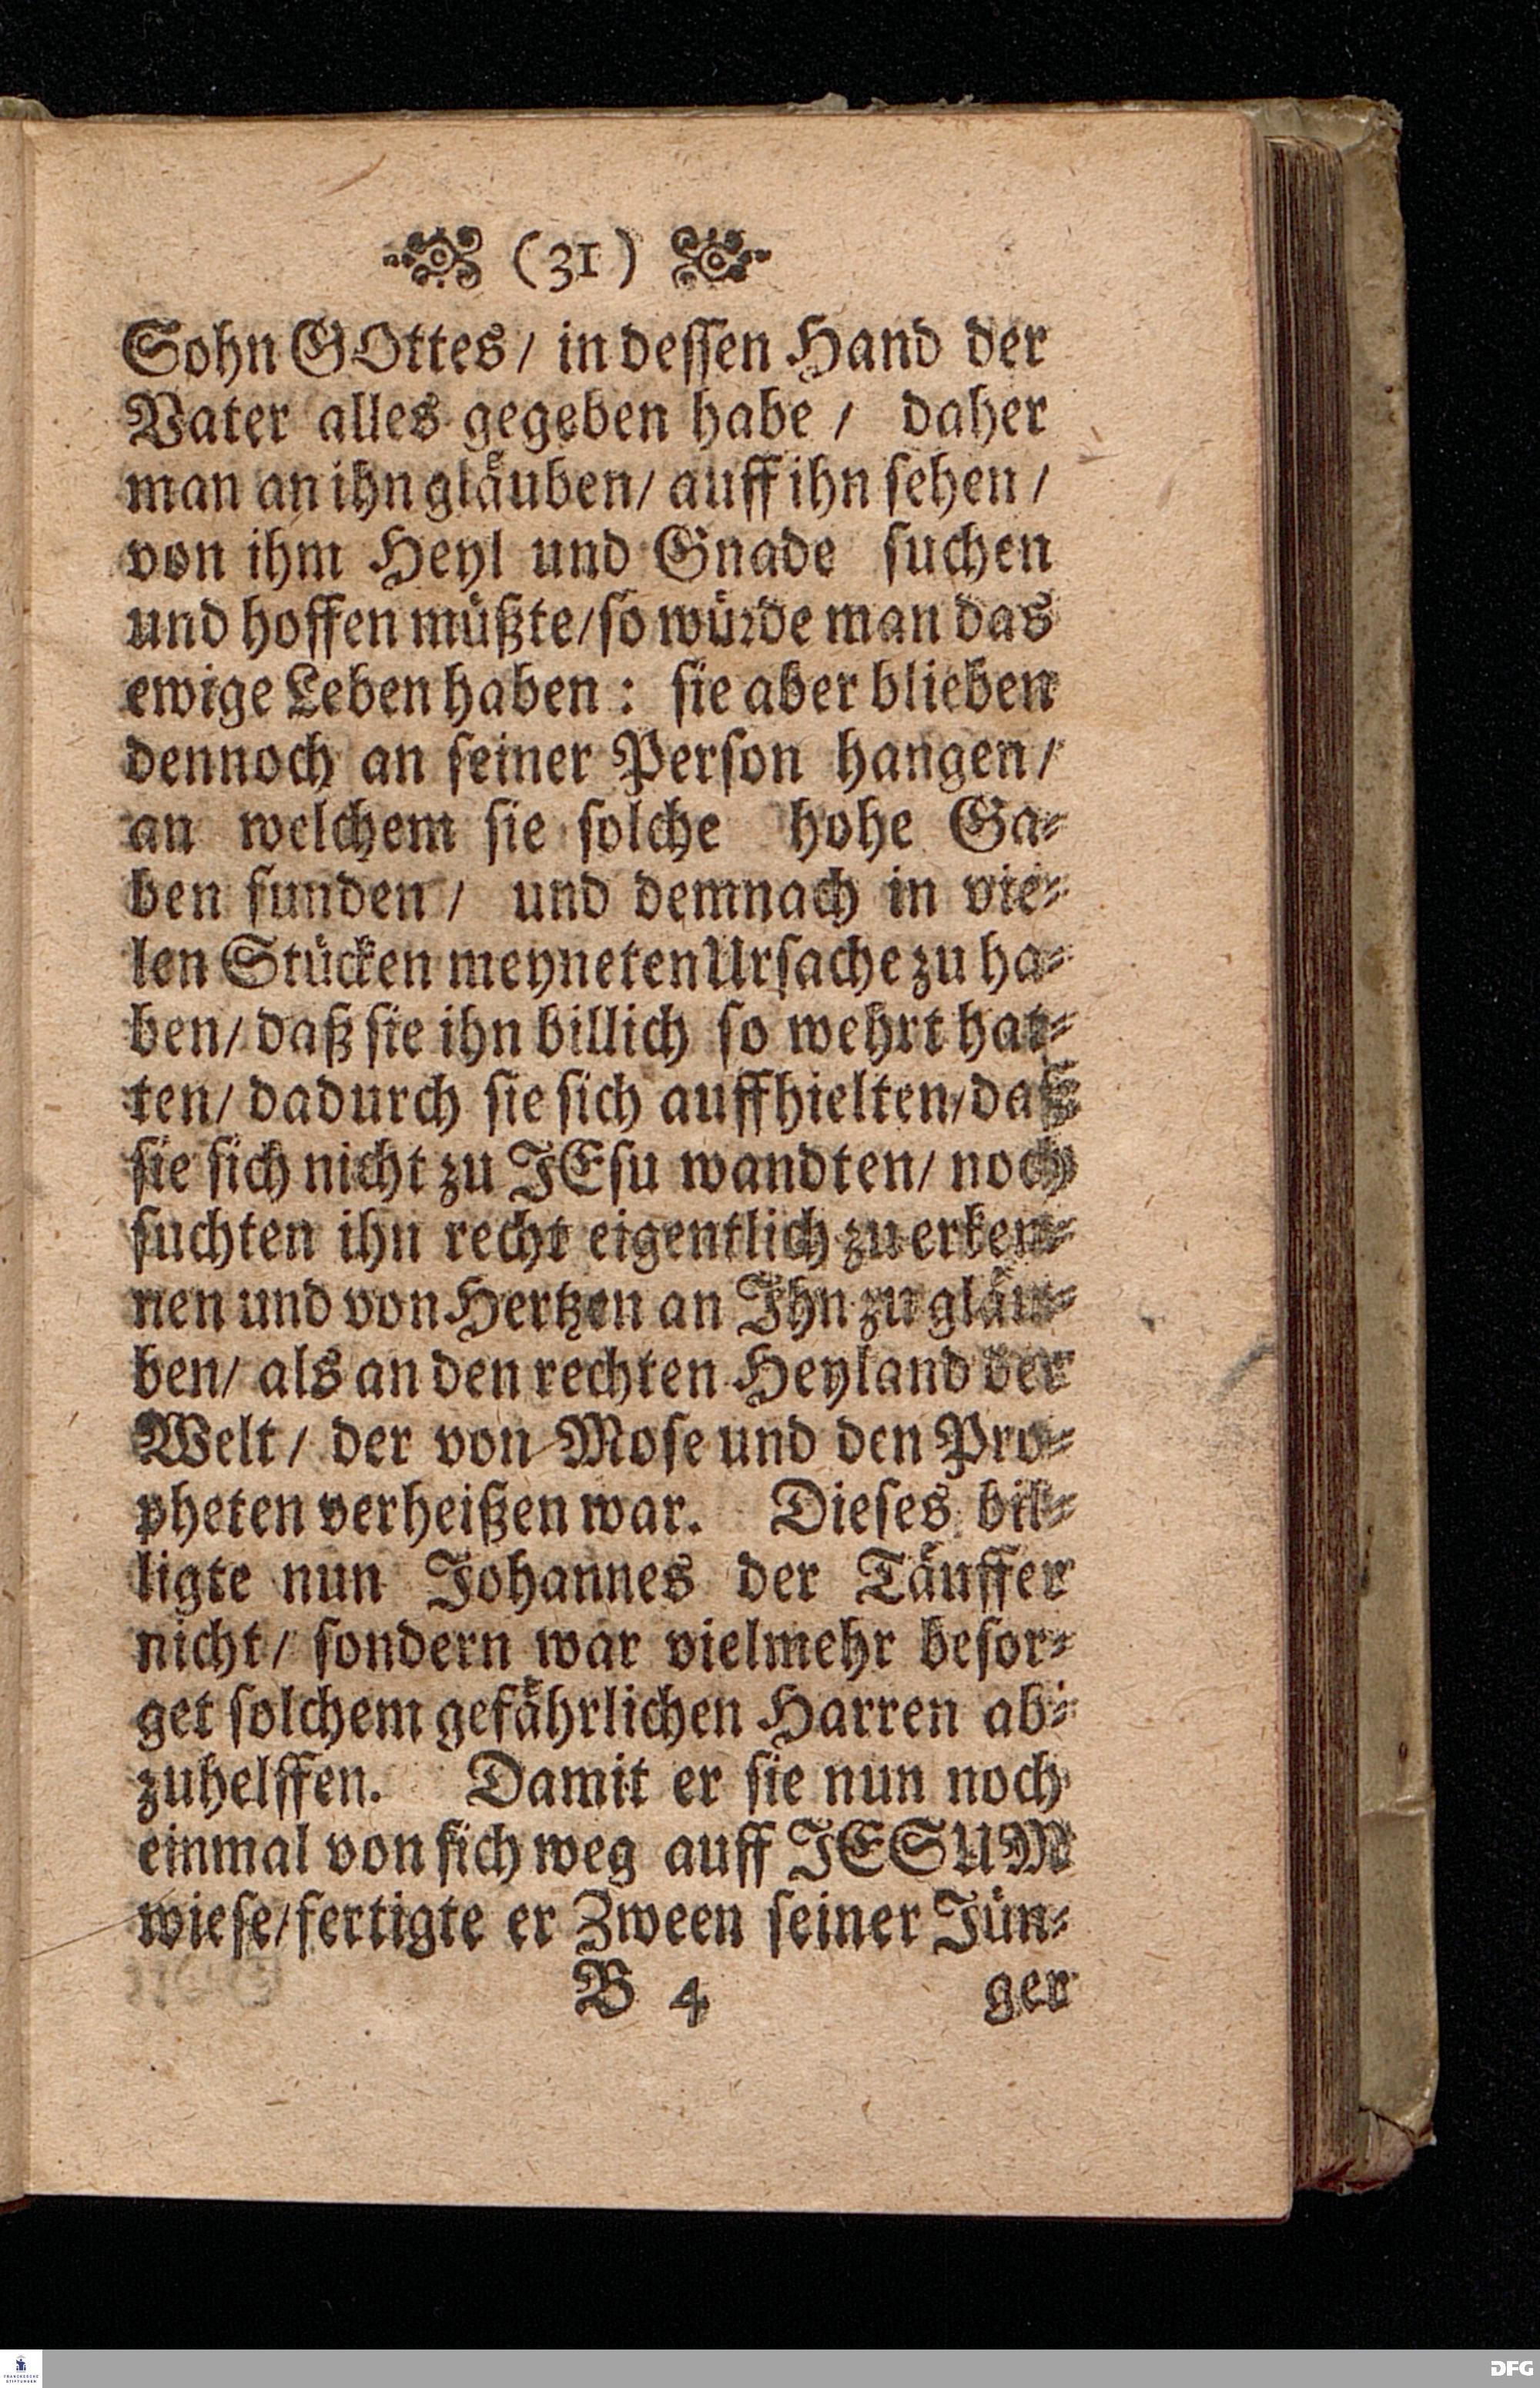 (31)
Sohn GOttes/ in dessen Hand der
Vater alles gegeben habe / daher
man an ihn gläuben/ auff ihn sehen /
von ihm Heyl und Gnade suchen
und hoffen müßte/ so würde man das
ewige Leben haben : sie aber blieben
dennoch an seiner Person hangen/
an welchem sie solche hohe Ga-
ben funden / und demnach in vie-
len Stücken meyneten Ursache zu ha-
ben/ daß sie ihn billich so wehrt hat-
ten/ dadurch sie sich auffhielten/ daß
sie sich nicht zu JEsu wandten/ noch
suchten ihn recht eigentlich zu erken-
nen und von Hertzen an Ihn zu gläu-
ben/ als an den rechten Heyland der
Welt/ der von Mose und den Pro-
pheten verheißen war. Dieses bil-
ligte nun Johannes der Täuffer
nicht/ sondern war vielmehr besor-
get solchem gefährlichen Harren ab-
zuhelffen. Damit er sie nun noch
einmal von sich weg auff JESUM
wiese/ fertigte er Zween seiner Jün-
B 4 ger
FRANCKESCHE
STIFTUNGEN
DFG